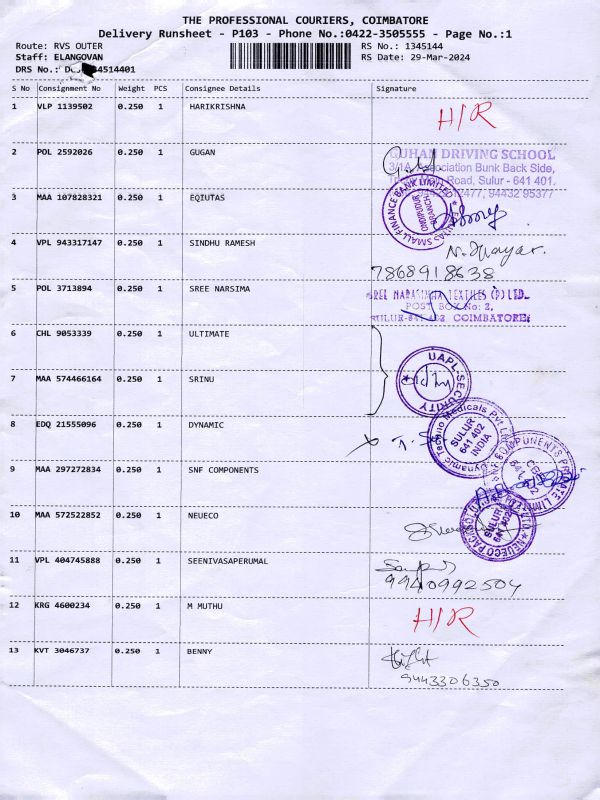 THE PROFESSIONAL COURIERS, COIMBATORE
Delivery Runsheet - P103 - Phone No.:0422-3505555 - Page No.:1
Route: RVS OUTER RS No.: 1345144
Staff: ELANGOVAN RS Date: 29-Mar-2024
DRS No.: 4514401
S No Consignment No Weight PCS Consignee Details Signature
1 VLP 1139502 0.250 1 HARIKRISHNA H/R
2 POL 2592026 0.250 1 GUGAN
GUHAN DRIVING SCHOOL
3/1A, Association Bunk Back Side,
Road, Sulur - 641 401.
2477, 94432 95377
3 MAA 107828321 0.250 1 EQIUTAS
SMALL FINANCE BANK LIMITED
4 VPL 943317147 0.250 1 SINDHU RAMESH
7868918638
5 POL 3713894 0.250 1 SREE NARSIMA
SREE NARASIMHA TEXTILES (P) LTD.
POST BOX No: 2,
SULUR-641 402 COIMBATORE
6 CHL 9053339 0.250 1 ULTIMATE
UAPL-SECURITY
7 MAA 574466164 0.250 1 SRINU
8 EDQ 21555096 0.250 1 DYNAMIC
Dynamic Techno Medicals Pvt Ltd
SULUR
641 402
INDIA
9 MAA 297272834 0.250 1 SNF COMPONENTS
COMPONENTS PRIVATE LIMITED
10 MAA 572522852 0.250 1 NEUECO
NEUECO
SULUR
641 402
11 VPL 404745888 0.250 1 SEENIVASAPERUMAL
9940992504
12 KRG 4600234 0.250 1 M MUTHU H/R
13 KVT 3046737 0.250 1 BENNY
9443306350